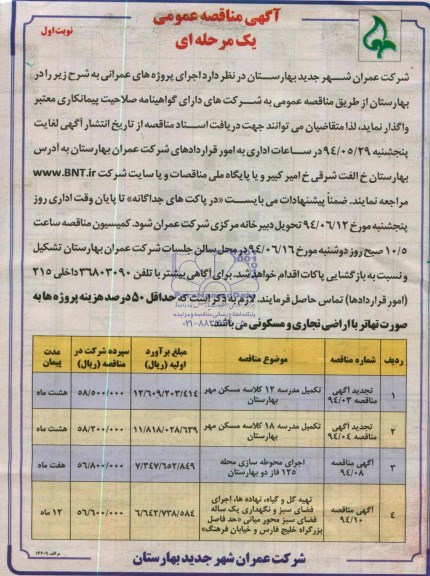 آگهی مناقصه عمومی
یک مرحله ای
نوبت اول
شرکت عمران شهر جدید بهارستان در نظر دارد اجرای پروژه های عمرانی به شرح زیر را در
بهارستان از طریق مناقصه عمومی به شرکت های دارای گواهینامه صلاحیت پیمانکاری معتبر
واگذار نماید، لذا متقاضیان می توانند جهت دریافت اسناد مناقصه از تاریخ انتشار آگهی لغایت
پنجشنبه ۹۴/۰۵/۲۹ در ساعات اداری به امور قراردادهای شرکت عمران بهارستان به آدرس
بهارستان خ الفت شرقی خ امیر کبیر و یا پایگاه ملی مناقصات و یا سایت شرکت www.BNT.ir
مراجعه نمایند. ضمناً پیشنهادات می بایست «در پاکت های جداگانه» تا پایان وقت اداری روز
پنجشنبه مورخ ۹۴/۰۶/۱۲ تحویل دبیر خانه مرکزی شرکت عمران شود. کمیسیون مناقصه ساعت
۱۰/۵ صبح روز دوشنبه مورخ ۹۴/۰۶/۱۶ در محل سالن جلسات شرکت عمران بهارستان تشکیل
و نسبت به بازگشایی پاکات اقدام خواهد شد. برای آگاهی بیشتر با تلفن ۳۶۸۰۳۰۹۰ داخلی ۲۱۵
(امور قراردادها) تماس حاصل فرمایند. لازم به ذکر است که حداقل ۵۰ درصد هزینه پروژه ها به
صورت تهاتر با اراضی تجاری و مسکونی می باشد.
ردیف شماره مناقصه موضوع مناقصه مبلغ برآورد اولیه (ریال) سپرده شرکت در مناقصه (ریال) مدت پیمان
۱ تجدید آگهی مناقصه ۹۴/۰۳ تکمیل مدرسه ۱۲ کلاسه مسکن مهر بهارستان ۱۲/۶۰۹/۲۰۳/۴۱۴ ۵۸/۵۰۰/۰۰۰ هشت ماه
۲ تجدید آگهی مناقصه ۹۴/۰۴ تکمیل مدرسه ۱۸ کلاسه مسکن مهر بهارستان ۱۱/۸۱۸/۰۲۸/۶۳۹ ۵۸/۲۰۰/۰۰۰ هشت ماه
۳ آگهی مناقصه ۹۴/۰۸ اجرای محوطه سازی محله ۱۲۵ فاز دو بهارستان ۷/۳۴۷/۶۵۲/۸۴۹ ۵۶/۸۰۰/۰۰۰ هفت ماه
۴ آگهی مناقصه ۹۴/۱۰ تهیه گل و گیاه، نهاده ها، اجرای فضای سبز و نگهداری یک ساله فضای سبز محور میانی «حد فاصل بزرگراه خلیج فارس و خیابان فرهنگ» ۶/۶۴۲/۷۳۸/۵۸۴ ۵۶/۶۰۰/۰۰۰ ۱۲ ماه
شرکت عمران شهر جدید بهارستان